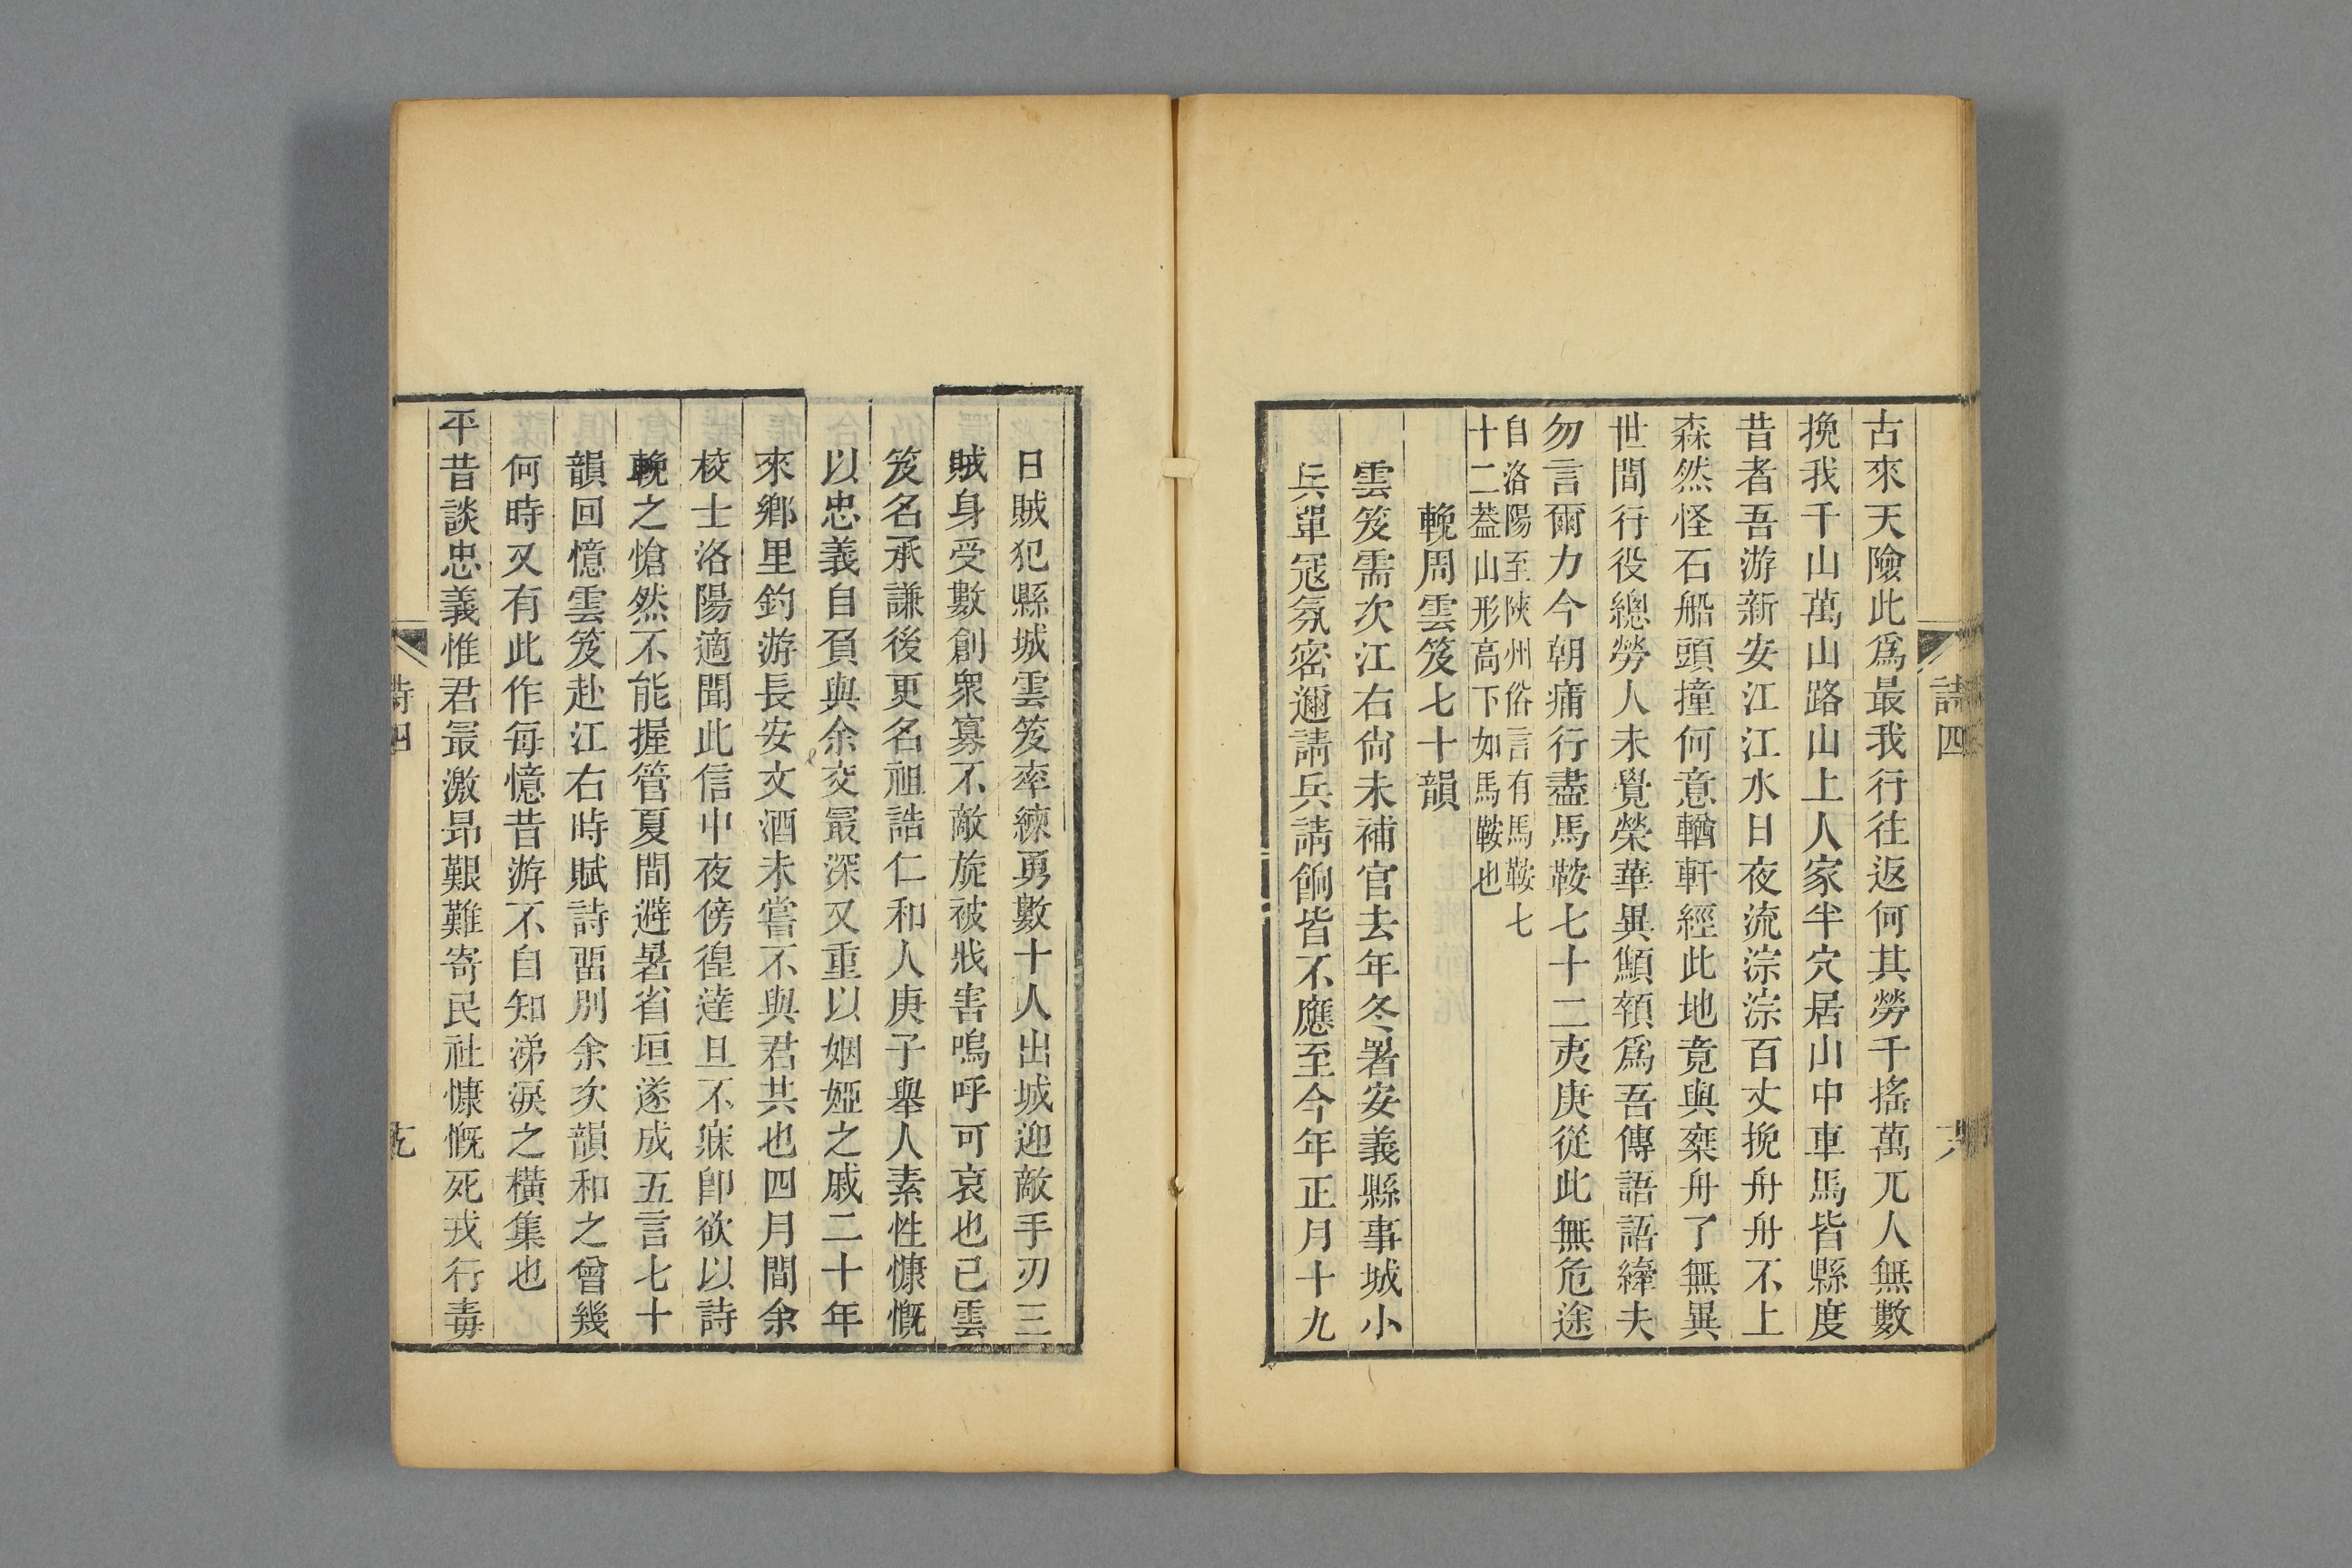 詩四
古來天險此爲最我行往返何其勞千搖萬兀人無數
挽我千山萬山路山上人家半穴居山中車馬皆縣度
昔者吾游新安江江水日夜流淙淙百丈挽舟舟不上
森然怪石船頭撞何意輶軒經此地竟與棄舟了無異
世間行役總勞人未覺榮華異顦顇爲吾傳語語縴夫
勿言爾力今朝痡行盡馬鞍七十二夷庚從此無危途
自洛陽至陝州俗言有馬鞍七
十二葢山形高下如馬鞍也
輓周雲笈七十韻
雲笈需次江右尙未補官去年冬署安義縣事城小
兵單冦氛密邇請兵請餉皆不應至今年正月十九
日賊犯縣城雲笈率練勇數十人出城迎敵手刃三
賊身受數創衆寡不敵旋被戕害嗚呼可哀也已雲
笈名承謙後更名祖誥仁和人庚子舉人素性慷慨
以忠義自負與余交最深又重以姻婭之戚二十年
來鄉里釣游長安文酒未嘗不與君共也四月間余
校士洛陽適聞此信中夜傍徨達旦不寐卽欲以詩
輓之愴然不能握管夏間避暑省垣遂成五言七十
韻回憶雲笈赴江右時賦詩畱別余次韻和之曾幾
何時又有此作每憶昔游不自知涕淚之橫集也
平昔談忠義惟君最激昂艱難寄民社慷慨死戎行毒
詩四